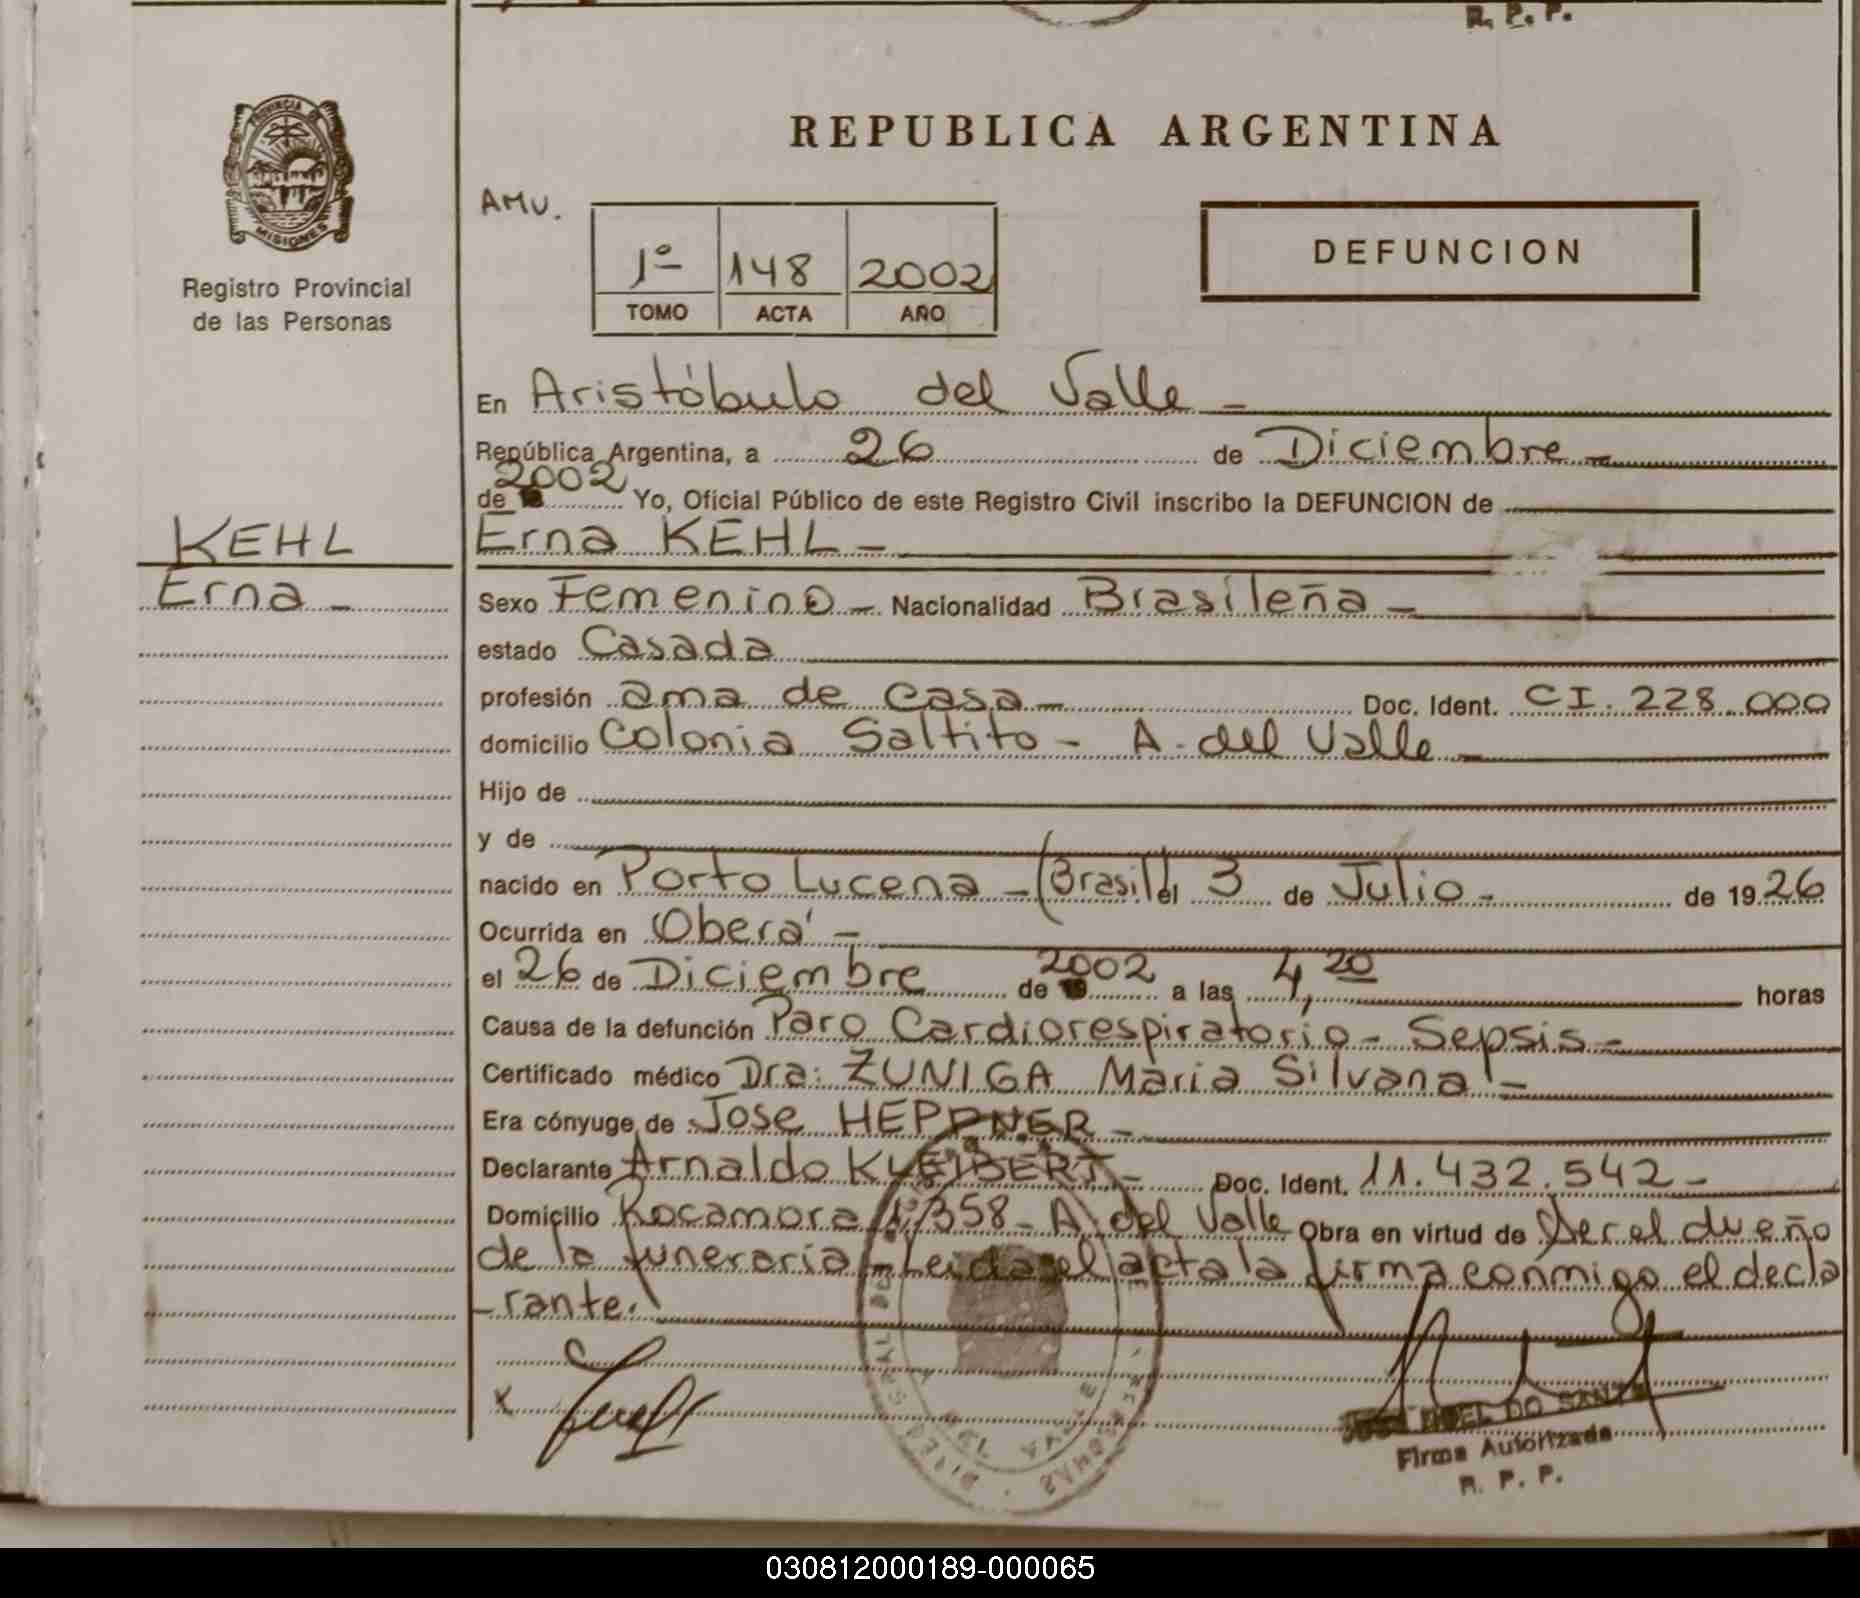 R. P. P.
PROVINCIA DE
MISIONES
Registro Provincial
de las Personas
REPUBLICA ARGENTINA
AMV.
1º 148 2002
TOMO ACTA AÑO
DEFUNCION
En Aristóbulo del Valle -
República Argentina, a 26 de Diciembre -
de 2002 Yo, Oficial Público de este Registro Civil inscribo la DEFUNCION de
KEHL
Erna KEHL -
Erna -
Sexo Femenino - Nacionalidad Brasileña -
estado Casada
profesión ama de casa - Doc. Ident. CI. 228.000
domicilio Colonia Saltito - A. del Valle -
Hijo de
y de
nacido en Porto Lucena - (Brasil) el 3 de Julio - de 1926
Ocurrida en Oberá -
el 26 de Diciembre de 2002 a las 4,20 horas
Causa de la defunción Paro Cardiorespiratorio - Sepsis -
Certificado médico Dra: ZUNIGA Maria Silvana -
Era cónyuge de Jose HEPPNER -
Declarante Arnaldo KLEIBERT - Doc. Ident. 11.432.542 -
Domicilio Rocamora 1,358 - A. del Valle Obra en virtud de Ser el dueño
de la funeraria - Leida el acta la firma conmigo el decla
- rante.
x
DO SANTO
Firma Autorizada
R. P. P.
030812000189-000065